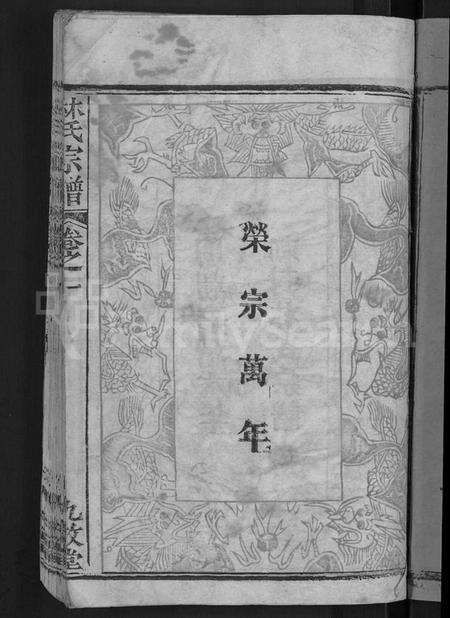 榮宗萬年
林氏宗譜
卷之一
九牧堂
FamilySearch